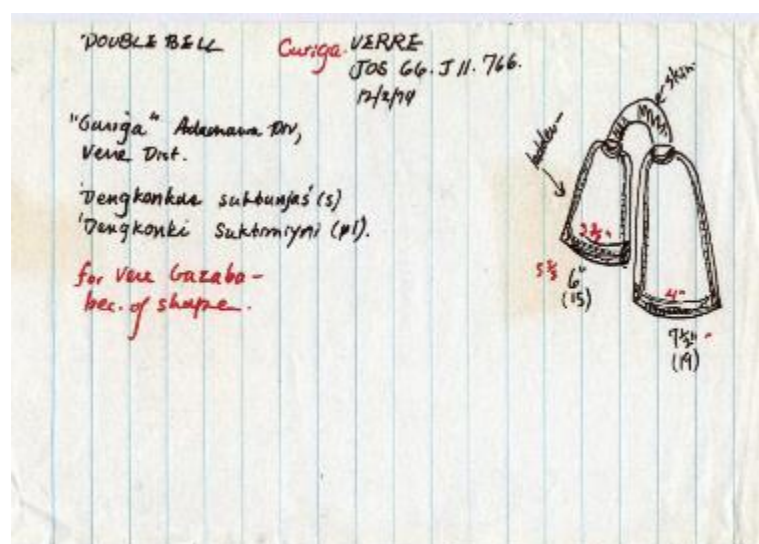 DOUBLE BELL
Curiga. VERRE
JOS 66. J 11. 766.
12/2/74
"Guriga" Adamawa Div,
Vere Dist.
'Dengkonkas suktunjas' (s)
'Dengkonki Suktmiymi (pl).
for Vere Gazaba -
bec. of shape.
skin
3½"
5⅗ 6"
(15)
4"
7½"
(19)